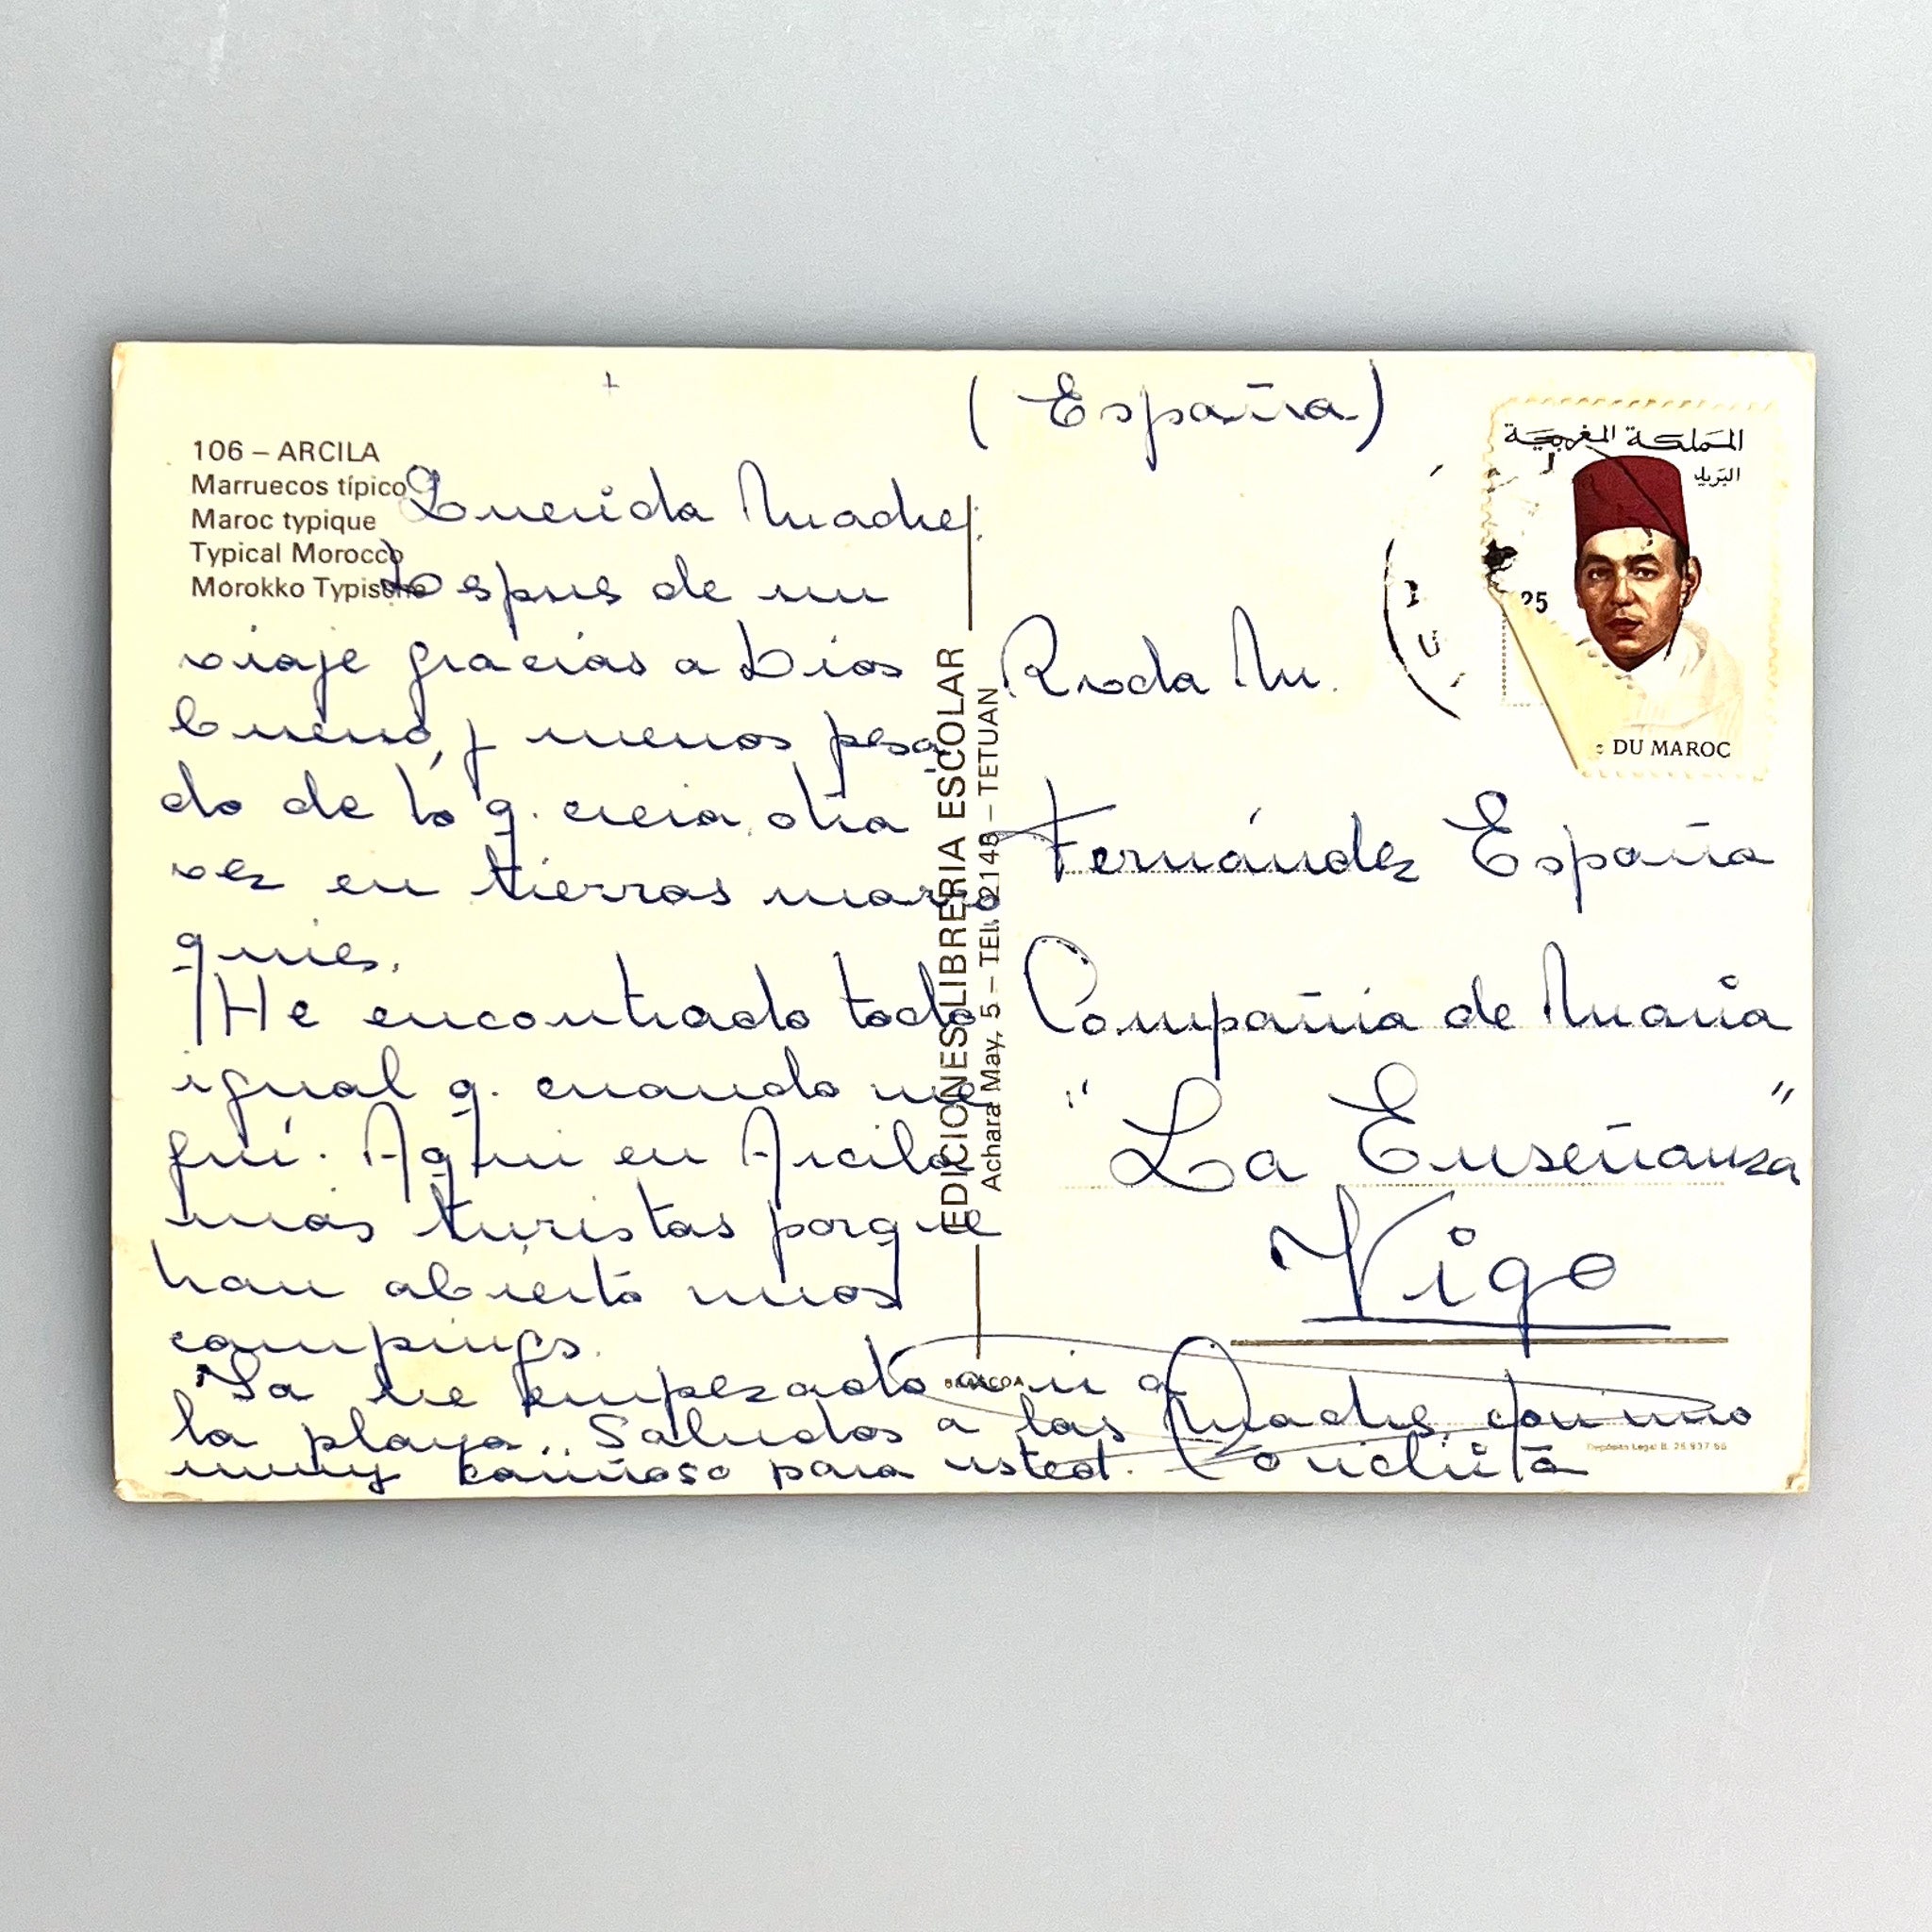 106 – ARCILA
Marruecos típico
Maroc typique
Typical Morocco
Morokko Typische
+
Querida Madre:
Despues de un
viaje gracias a Dios
bueno, y menos pesa
do de lo q. creia, otra
vez en tierras marro
quies.
He encontrado todo
igual q. cuando me
fuí. Aqui en Arcila
más turistas porque
han abierto unos
campings.
Ya he empezado a ir a
la playa. Saludos a las Madres, con uno
muy cariñoso para usted. Conchita
EDICIONES LIBRERIA ESCOLAR
Achara May, 5 – TEL. 2148 – TETUAN
(España)
المملكة المغربية
البريد
25
DU MAROC
Rvda M.
Fernández España
Compañia de Maria
"La Enseñanza"
Vigo
Depósito Legal B.